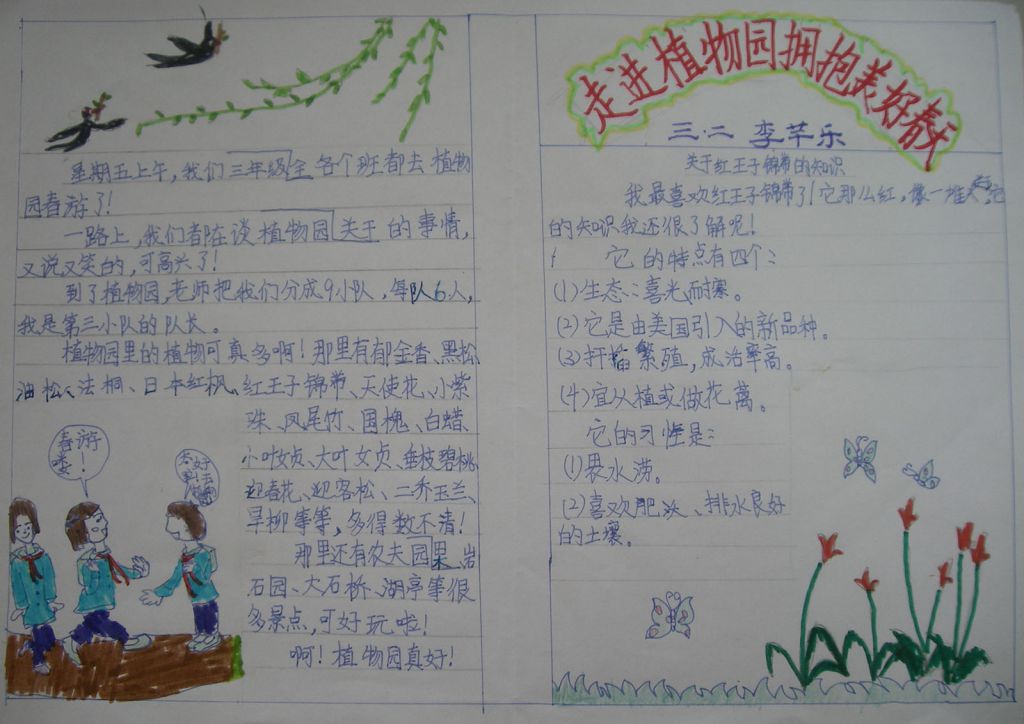 走进植物园拥抱美好春天
三.二 李芊乐
星期五上午，我们三年级全各个班都去植物
园春游了！
一路上，我们都在谈植物园关于的事情，
又说又笑的，可高兴了！
到了植物园，老师把我们分成9小队，每队6人，
我是第三小队的队长。
植物园里的植物可真多啊！那里有郁金香、黑松、
油松、法桐、日本红枫、红王子锦带、天使花、小紫
珠、凤尾竹、国槐、白蜡、
小叶女贞、大叶女贞、垂枝碧桃、
迎春花、迎客松、二乔玉兰、
旱柳等等，多得数不清！
那里还有农夫园果、岩
石园、大石桥、湖亭等很
多景点，可好玩啦！
啊！植物园真好！
春游
喽！
关于红王子锦带的知识
我最喜欢红王子锦带了！它那么红，像一堆火，它
的知识我还很了解呢！
它的特点有四个：
(1)生态：喜光，耐寒。
(2)它是由美国引入的新品种。
(3)扦插繁殖，成活率高。
(4)宜从植或做花篱。
它的习性是：
(1)畏水涝。
(2)喜欢肥沃、排水良好
的土壤。